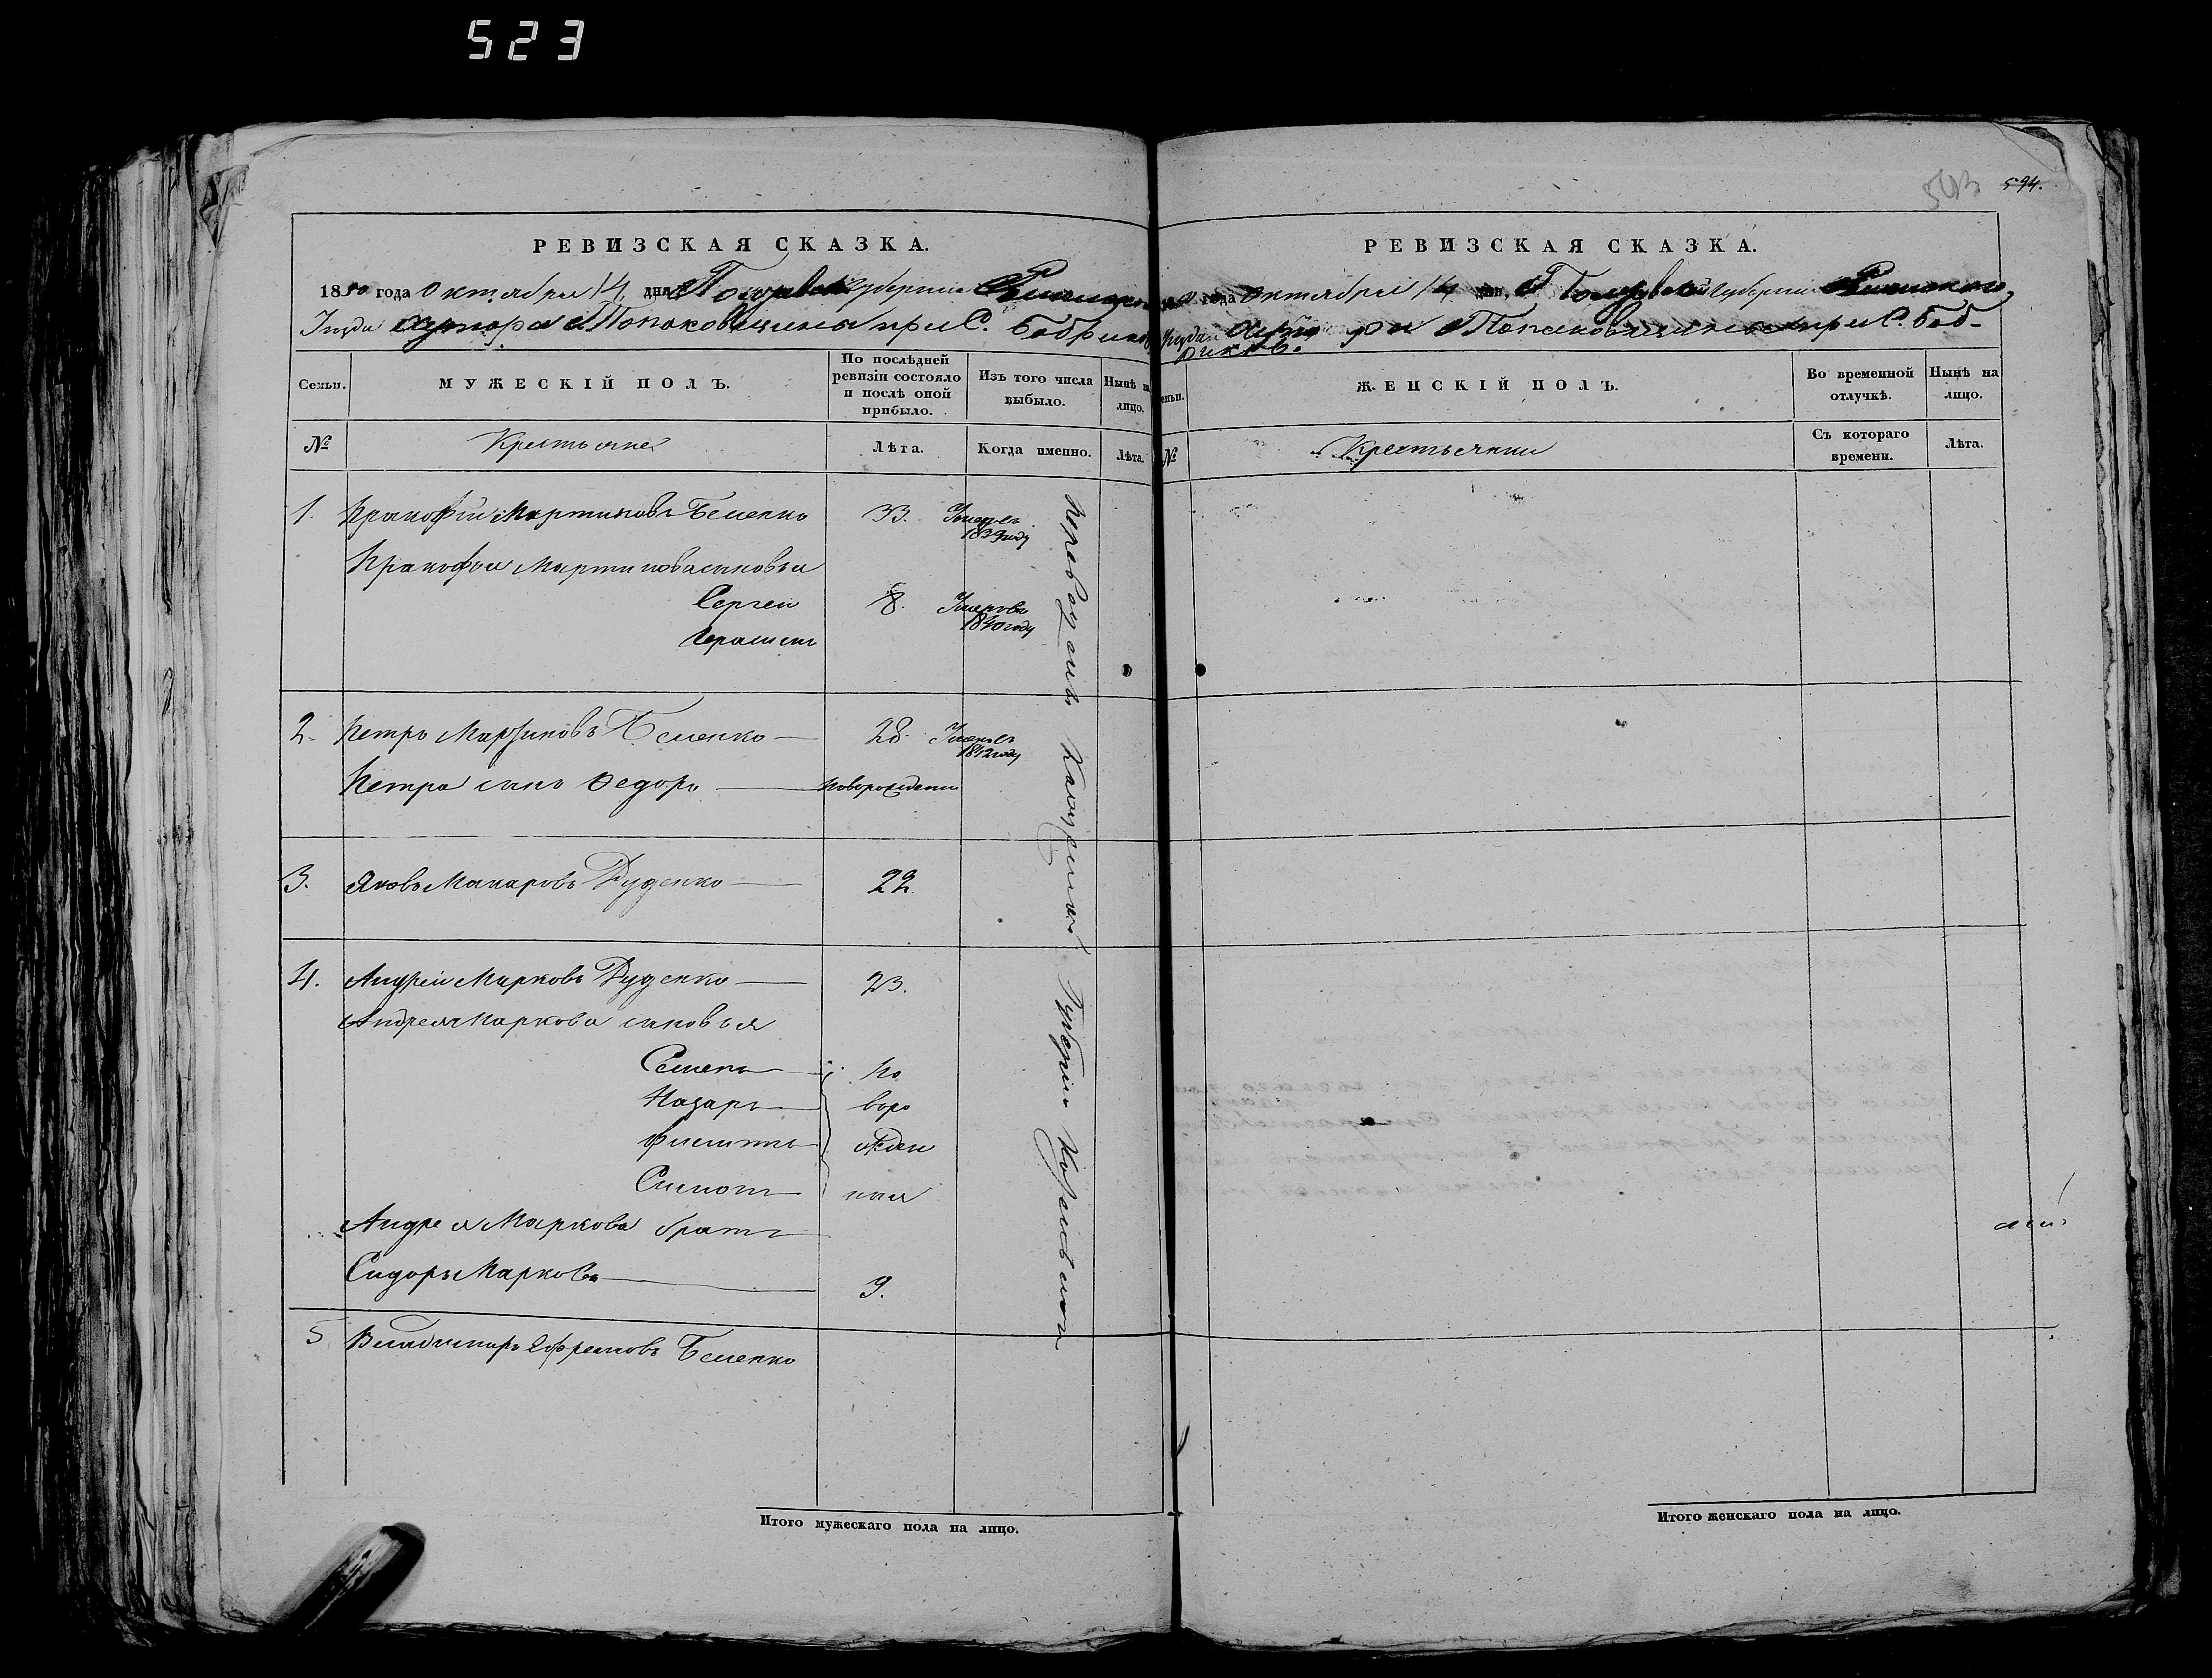 523
593 594.
РЕВИЗСКАЯ СКАЗКА.
1850 года Октября 14 дня Полтавской Губернии
Уезда Хутора Попаковщины при С. Бобрик
Семьи.
МУЖЕСКІЙ ПОЛЪ.
По послѣдней ревизіи состояло и послѣ оной прибыло.
Изъ того числа выбыло.
Нынѣ на лицо.
№
Крестьяне
Лѣта.
Когда именно.
Лѣта.
1. Прокофий Мартиновъ Беленко 33. Умеръ
1839 году
Прокофия Мартинова сыновья
Сергей 8. Умеръ
1840 году
Герасимъ
2. Петръ Мартиновъ Беленко 28. Умеръ
1842 году
Петра сынъ Федоръ новорожденны
3. Яковъ Макаровъ Руденко 22.
4. Андрей Марковъ Руденко 23.
Андрея Маркова сыновья
Семенъ но
Назаръ воро
Филипъ жден
ныи
Андрея Маркова братъ
Сидоръ Марковъ 9.
5 Владимиръ Ефремовъ Беленко
Губернию
Итого мужескаго пола на лицо.
РЕВИЗСКАЯ СКАЗКА.
года Октября 14 дня Полтавской Губернии
Хутора Попаковщины при С. Боб-
рикъ.
ЖЕНСКІЙ ПОЛЪ.
Во временной отлучкѣ.
Нынѣ на лицо.
№
Крестьянки
Съ котораго времени.
Лѣта.
Итого женскаго пола на лицо.